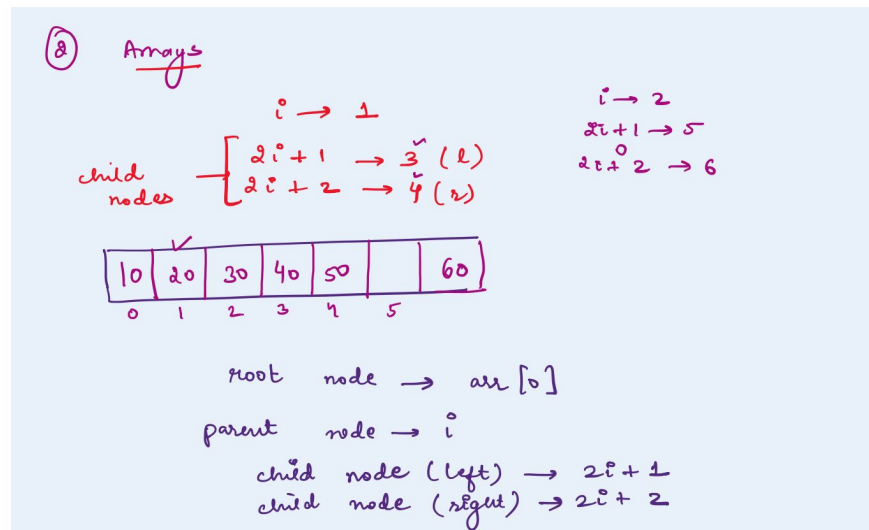 ② Arrays
i → 1
child nodes
2i + 1 → 3 (l)
2i + 2 → 4 (r)
i → 2
2i + 1 → 5
2i + 2 → 6
10 20 30 40 50 60
0 1 2 3 4 5
root node → arr [0]
parent node → i
child node (left) → 2i + 1
child node (right) → 2i + 2